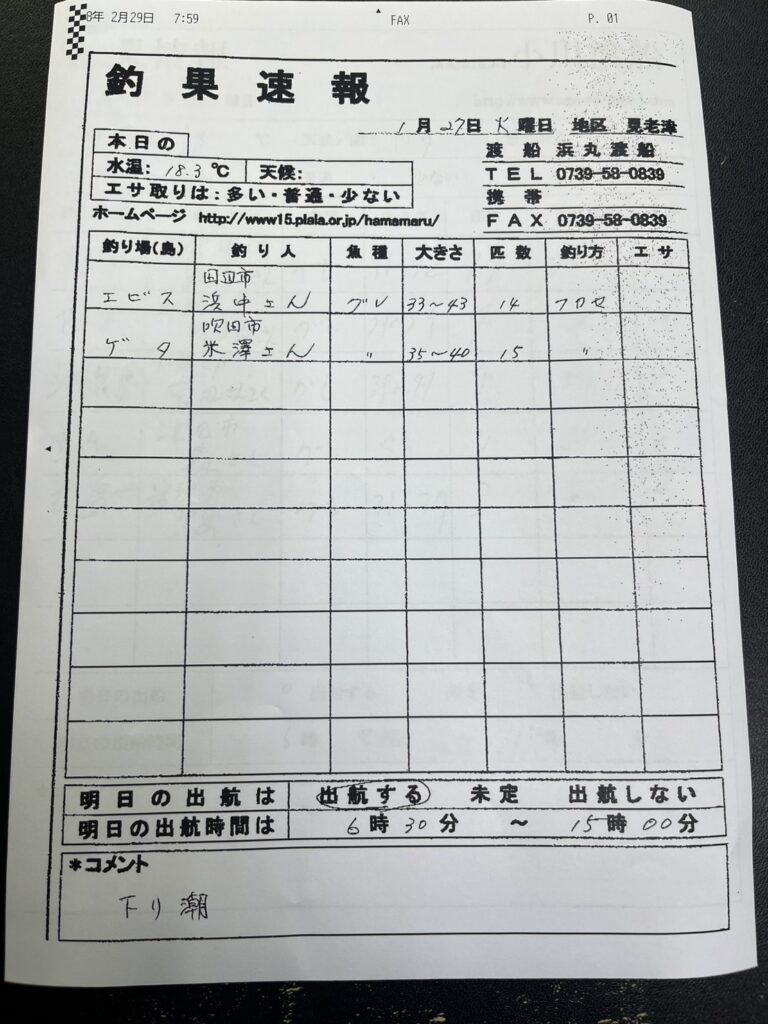 8年 2月29日 7:59 FAX P. 01
釣果速報
1月27日 火曜日 地区 見老津
本日の
水温: 18.3℃ 天候:
エサ取りは:多い・普通・少ない
渡船 浜丸渡船
TEL 0739-58-0839
携帯
FAX 0739-58-0839
ホームページ http://www15.plala.or.jp/hamamaru/
釣り場(島) 釣り人 魚種 大きさ 匹数 釣り方 エサ
田辺市
エビス 浜中さん グレ 33~43 14 フカセ
吹田市
ゲタ 米澤さん 〃 35~40 15 〃
明日の出航は 出航する 未定 出航しない
明日の出航時間は 6時30分 ~ 15時00分
*コメント
下り潮